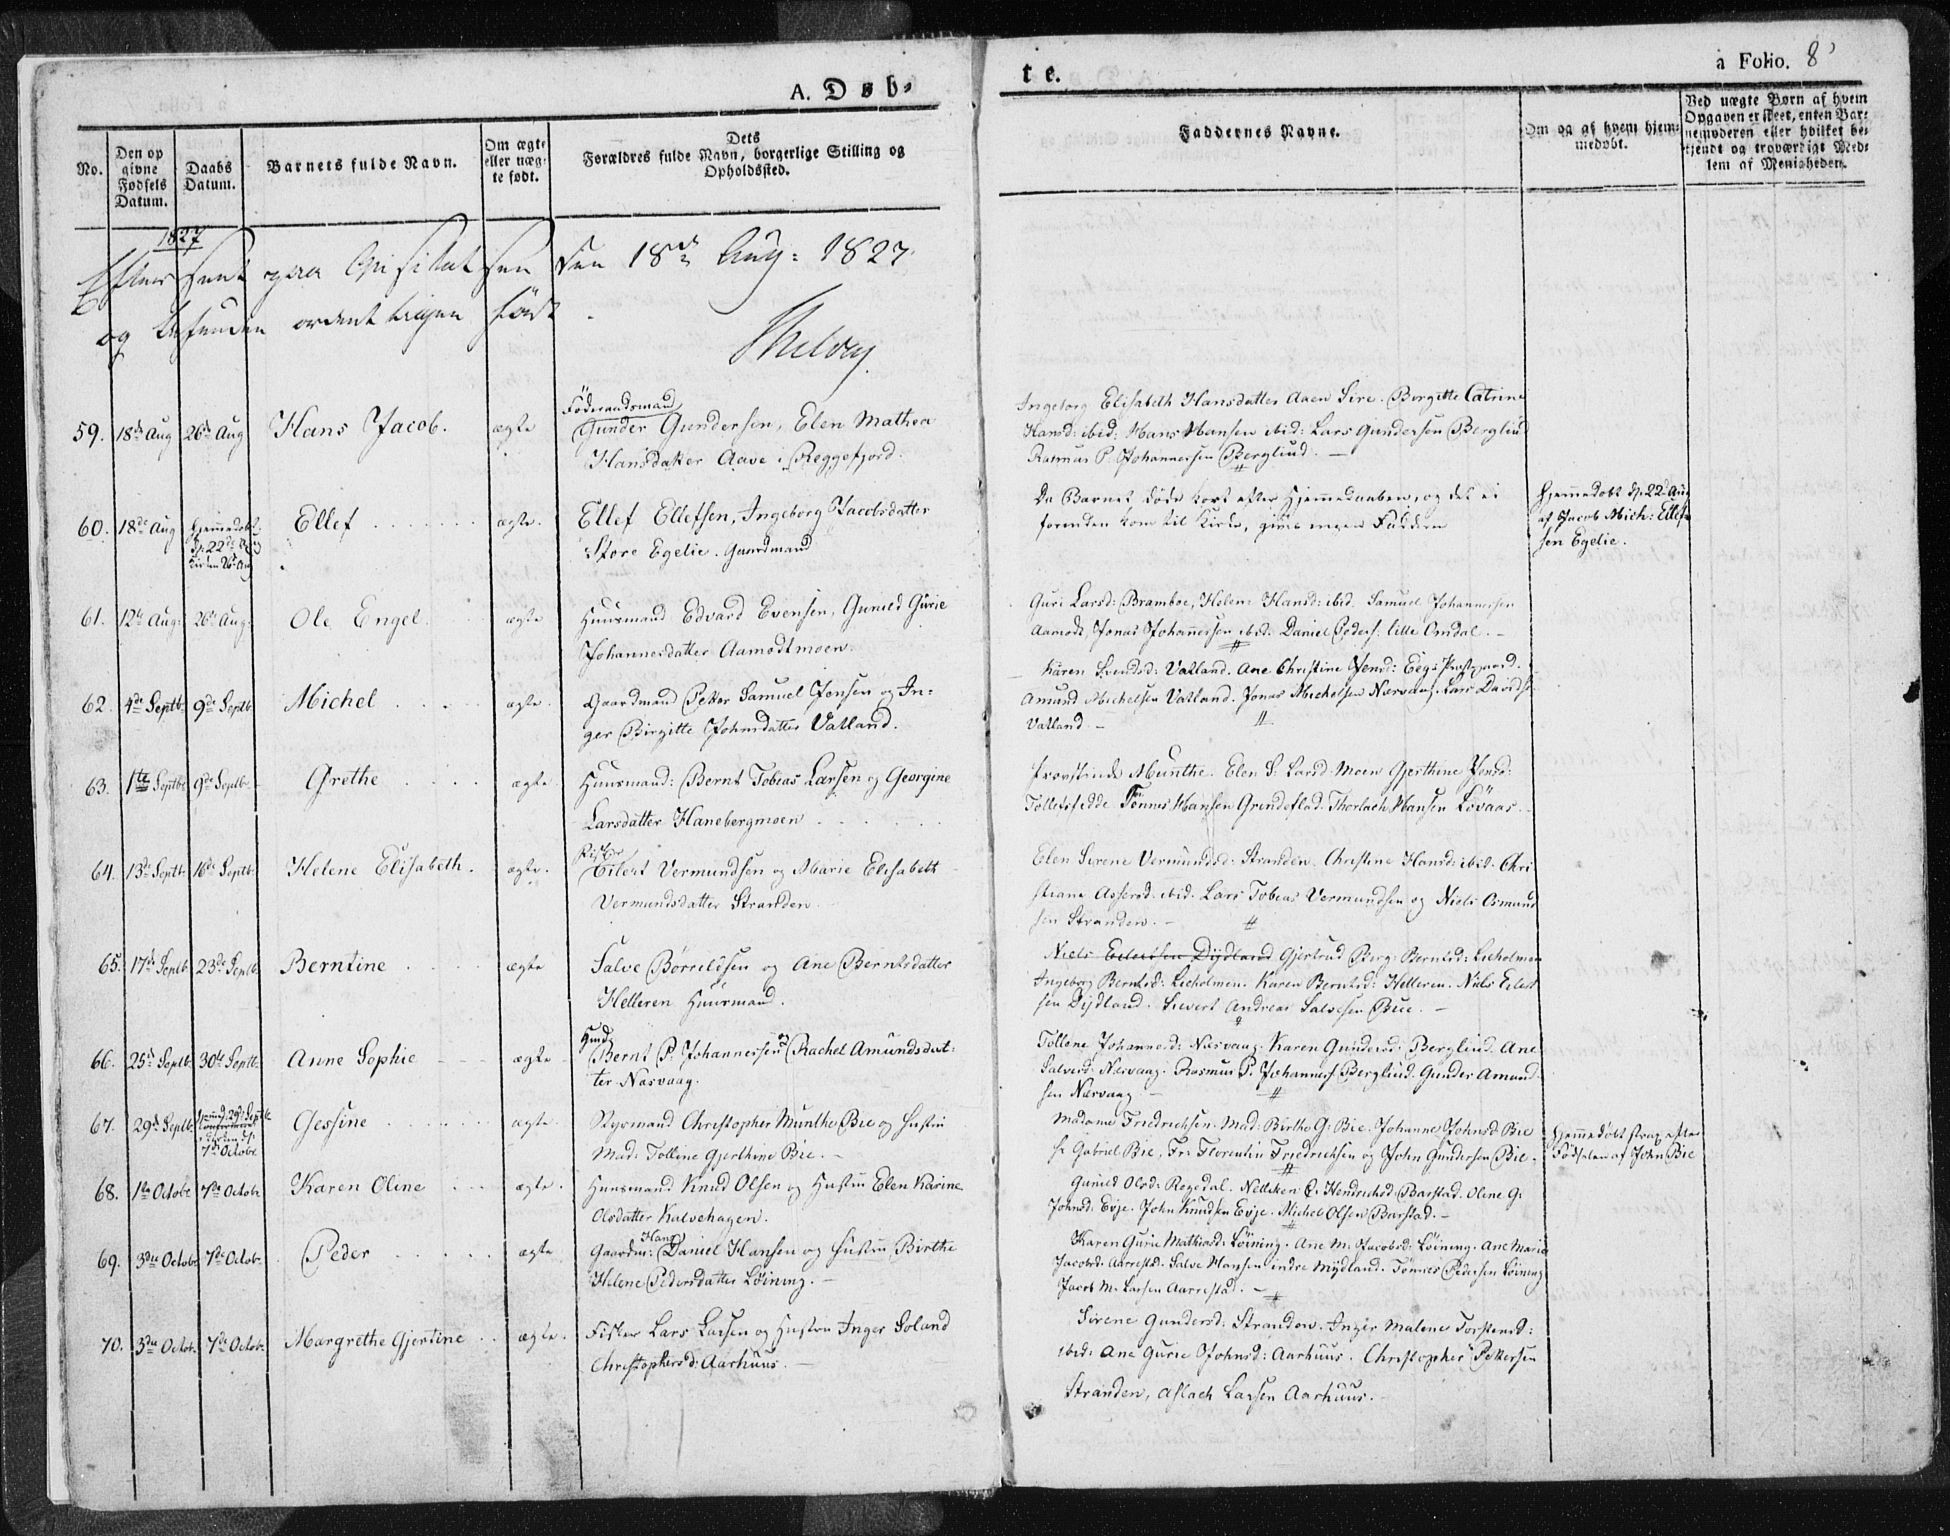 A. Døb-
te.
a Folio. 8
No.
Den op
givne
Fødsels
Datum.
Daabs
Datum.
Barnets fulde Navn.
Om ægte
eller uæg-
te født.
Dets
Forældres fulde Navn, borgerlige Stilling og
Opholdssted.
Faddernes Navne.
Om og af hvem hjem-
medøbt.
Ved uægte Børn af hvem
Opgaven er skeet, enten Bar-
nemoderen eller hvilket be-
kjendt og troværdigt Med-
lem af Menigheden.
1827
Efterseet paa Visitatsen den 18de Aug: 1827.
og befunden ordentligen ført.
59. 18de Aug 26de Aug Hans Jacob. ægte
Føderaadsmand
Gunder Gundersen, Elen Mathea
Hansdatter Aave i Reggefjord.
Ingeborg Elisabeth Hansdatter Aaen Sire. Borgitte Catrine
Hansd: ibid: Hans Hansen ibid: Lars Gundersen Bergliud
Rasmus P. Johannersen Bergliud. —
60. 18de Aug Hjemmedøbt
d. 22de Aug
Kirken 26de Aug
Ellef ægte.
Ellef Ellefsen, Ingeborg Jacobsdatter
Store Egelie. Gaardmand
Da Barnet døde kort efter Hjemmedaaben, og det ei
forinden kom til Kirke, gives ingen Faddere
Hjemmedøbt d. 22de Aug
af Jacob Mich: Ellef
sen Egelie.
61. 12te Aug: 26de Aug: Ole Engel. ægte
Huusmand Edvard Evensen, Gunild Gurie
Johannesdatter Aamodtmoen.
Guri Larsd: Bramboe, Helene Hansd: ibid. Samuel Johannersen
Aamodt, Jonas Johannessen ibid. Daniel Peders. lille Omdal. —
62. 4de Septb 9de Septb Michel ægte.
Gaardmand Petter Samuel Jensen og In-
ger Birgitte Johnsdatter Vatland.
Karen Svendsd: Vatland. Ane Christine Jensd: Eegs Præstgaard.
Amund Michelsen Vatland. Jonas Michelsen Næsvaag. Lars Davids
Vatland —
63. 1te Septbr 9de Septb. Grethe ægte
Huusmand: Bernt Tobias Larsen og Georgine
Larsdatter Hanebergmoen
Provstinde Munthe. Elen S. Larsd. Moen Gjerthine Jensd:
Tolletsfedde Tønnes Hansen Grendeflad. Thorlach Hansen Lövaas.
64. 13de Septb: 16de Septb. Helene Elisabeth. ægte.
Fisker
Eilert Vermundsen og Marie Elisabeth
Vermundsdatter Stranden
Elen Serene Vermundsd: Stranden. Christine Hansd: ibid. Chri
stiane Assersd. ibid. Lars Tobias Vermundsen og Niels Osmund
sen Stranden. —
65. 17de Septb: 23de Septb: Berntine ægte
Salve Børrildsen og Ane Berntsdatter
Helleren Huusmand.
Niels Eilertsen Dydland Gjertrud Berg. Berntsd: Lieholmen
Ingeborg Berntsd: Lieholmen. Karen Berntsd: Helleren. Niels Eilert
sen Dydland. Sievert Andreas Salvesen Bue. —
66. 25de Septb. 30te Septb. Anne Sophie ægte
Huusmd
Bernt P. Johannersen og Rachel Amundsdat-
ter Næsvaag.
Tollene Johannesd: Næsvaag. Karen Gundersd: Bergliud. Ane
Salvesd: Næsvaag. Rasmus P. Johannesf Bergliud. Gunder Amund
sen Næsvaag —
67. 29de Septb. Hjemmd. 29de Septb
i Kirken d.
7de Octobr
Gessine ægte
Styrmand Christopher Munthe Bie og Hustru
Mad: Tolline Gjerthine Bie. —
Madame Friedrichsen. Mad: Birthe G. Bie. Johanne Johnsd. Bie
Hr Gabriel Bie, Fr: Florentin Friedrichsen og John Gundersen Bie.
Hjemmedøbt strax efter
Fødselen af John Bie
68. 1te Octobr 7de Octobr. Karen Oline ægte.
Huusmand Knud Olsen og Hustru Elen Karine
Olsdatter Kalvehagen.
Gunild Olsd: Regedal. Nelliken C. Hendrichsd Barstad. Oline G.
Johnsd. Evje. John Knudsen Evje. Michel Olsen Barstad. —
69. 3die Octob. 7de Octob. Peder ægte
Hans
Gaardm: Daniel Hansen og Hustru Birthe
Helene Pedersdatter Løining. —
Karen Gurie Mathiasd: Løining. Ane M. Jacobsd: Løining. Ane Marie
Jacobsd: Aarrestad. Salve Hansen indre Mydland. Tønnes Pedersen Løining
Jacob M. Larsen Aarrestad. —
70. 3die Octob. 7de Octob. Margrethe Gjertine ægte.
Fisker Lars Larsen og Hustru Inger Soland
Christophersd: Aarhuus. —
Sirene Gundersd: Stranden. Inger Malene Torstensd:
ibid: Ane Gurie Johnsd: Aarhuus. Christopher Pettersen
Stranden, Aslach Larsen Aarhuus. —